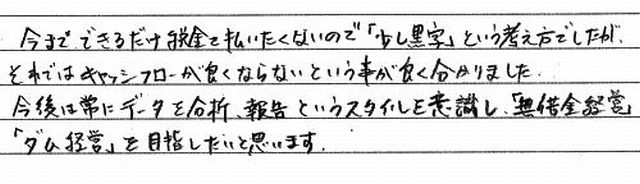 今までできるだけ税金を払いたくないので「少し黒字」という考え方でしたが、
それではキャッシュフローが良くならないという事が良く分かりました。
今後は常にデータを分析、報告というスタイルを意識し、「無借金経営」
「ダム経営」を目指したいと思います。